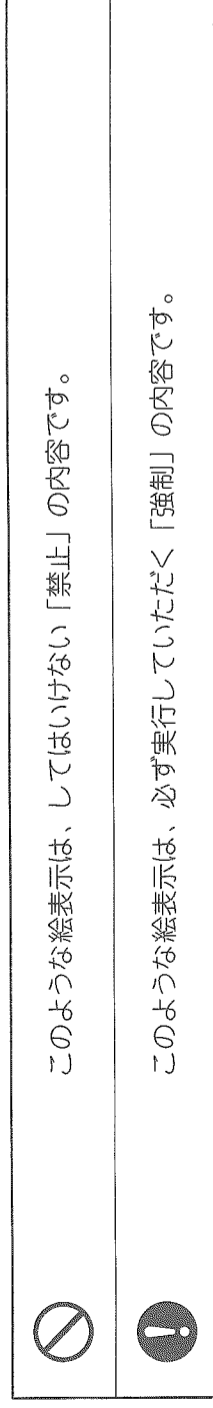 このような絵表示は、してはいけない「禁止」の内容です。
このような絵表示は、必ず実行していただく「強制」の内容です。